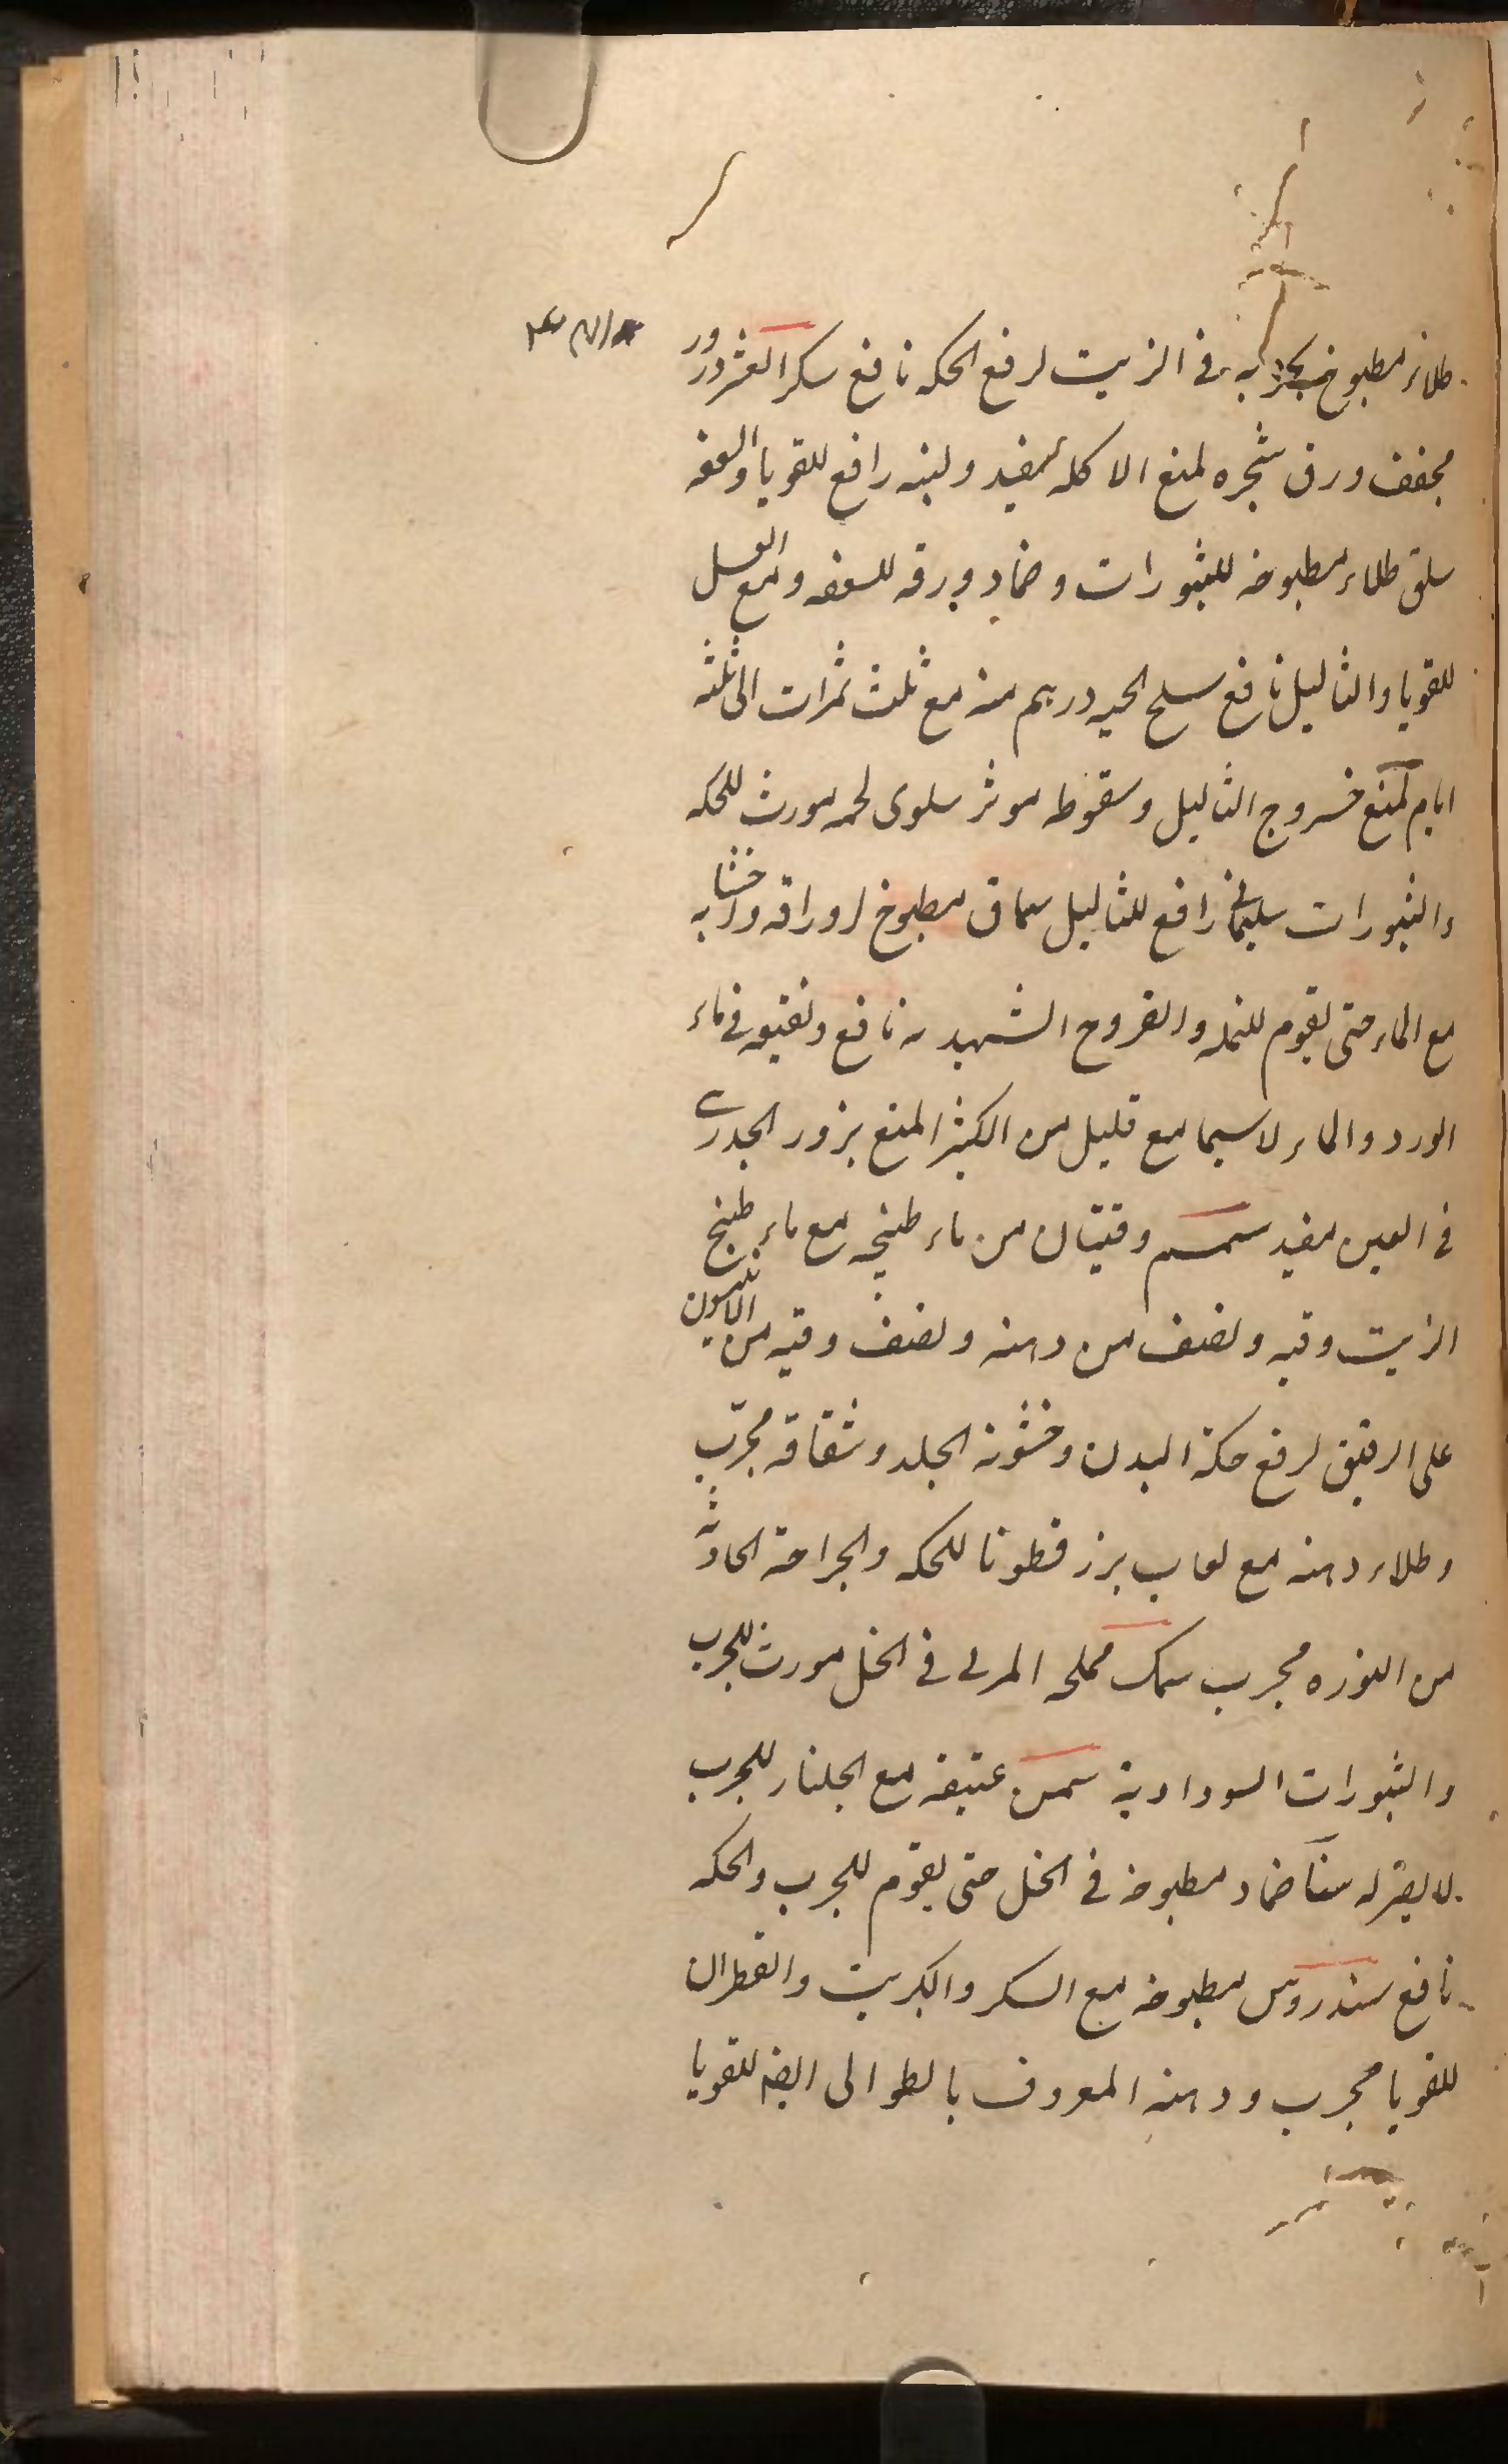 طلاء مطبوخ به فی الزیت لرفع الحکه نافع سکر العشر ذرور
مجفف ورق شجره لمنع الاکله مفید ولبنه رافع للقوبا والسعفه
سلق طلاء مطبوخه للبثورات وضماد ورقه للسعفه ومع العسل
للقوبا والثالیل نافع سلخ الحیه درهم منه مع ثلث تمرات الی ثلثه
ایام لمنع خروج الثالیل وسقوطه موثر سلوی لحمه مورث للحکه
والبثورات سلیمانی رافع للثالیل سماق مطبوخ اوراقه واخشابه
مع الماء حتی یقوم للنمله والقروح الشهدیه نافع ونقیعه فی ماء
الورد والماء لاسیما مع قلیل من الکثیرا لمنع بزور الجدری
فی العین مفید سمسم وقیتان من ماء طبخه مع ماء طبخ
الزبیب وقیه ونصف من دهنه ونصف وقیه من
علی الریق لرفع حکة البدن وخشونة الجلد وشقاقه مجرّب
وطلاء دهنه مع لعاب بزر قطونا للحکه والجراحة الحادثه
من النوره مجرب سمک مملحه المربی فی الخل مورث للجرب
والبثورات السوداویة سمن عتیقه مع الجلنار للجرب
لا یعتر له سنا ضماد مطبوخه فی الخل حتی یقوم للجرب والحکه
نافع سندروس مطبوخه مع السکر والکبریت والقطران
للقوبا مجرب ودهنه المعروف بالطوالی ایضا للقوبا